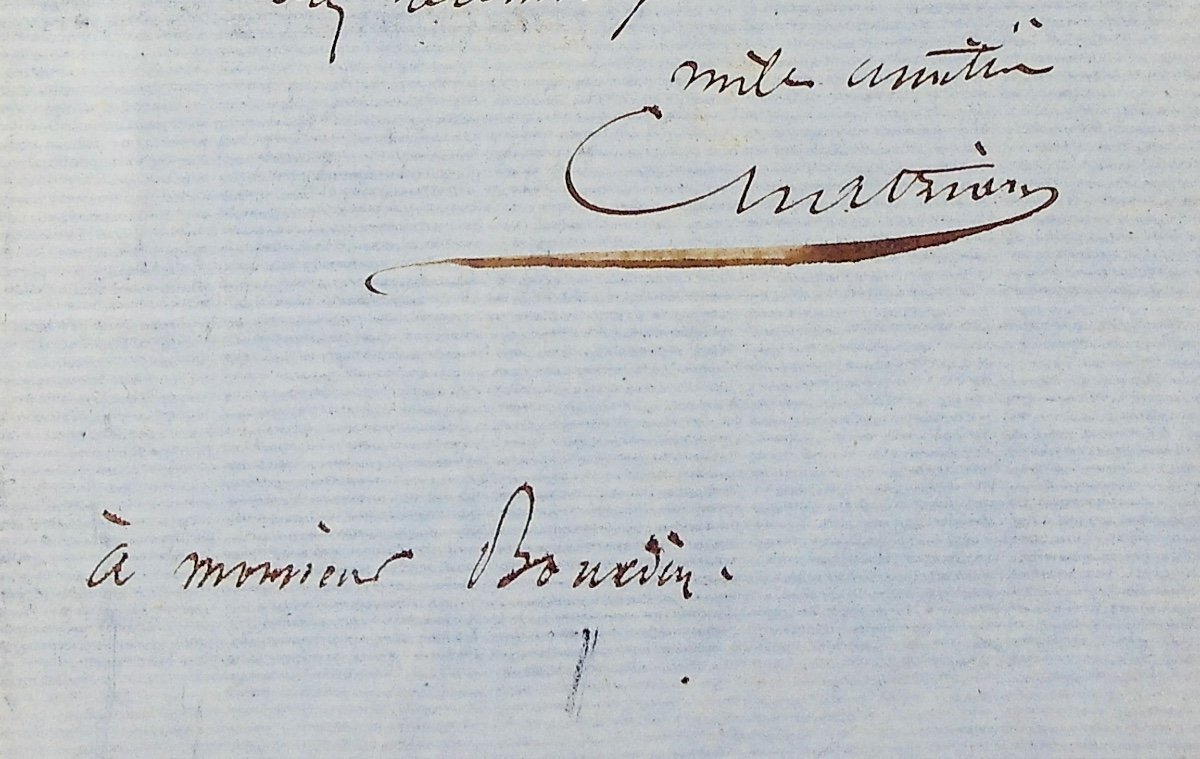 mille amitiés
Chatrian
à monsieur Bourdin.